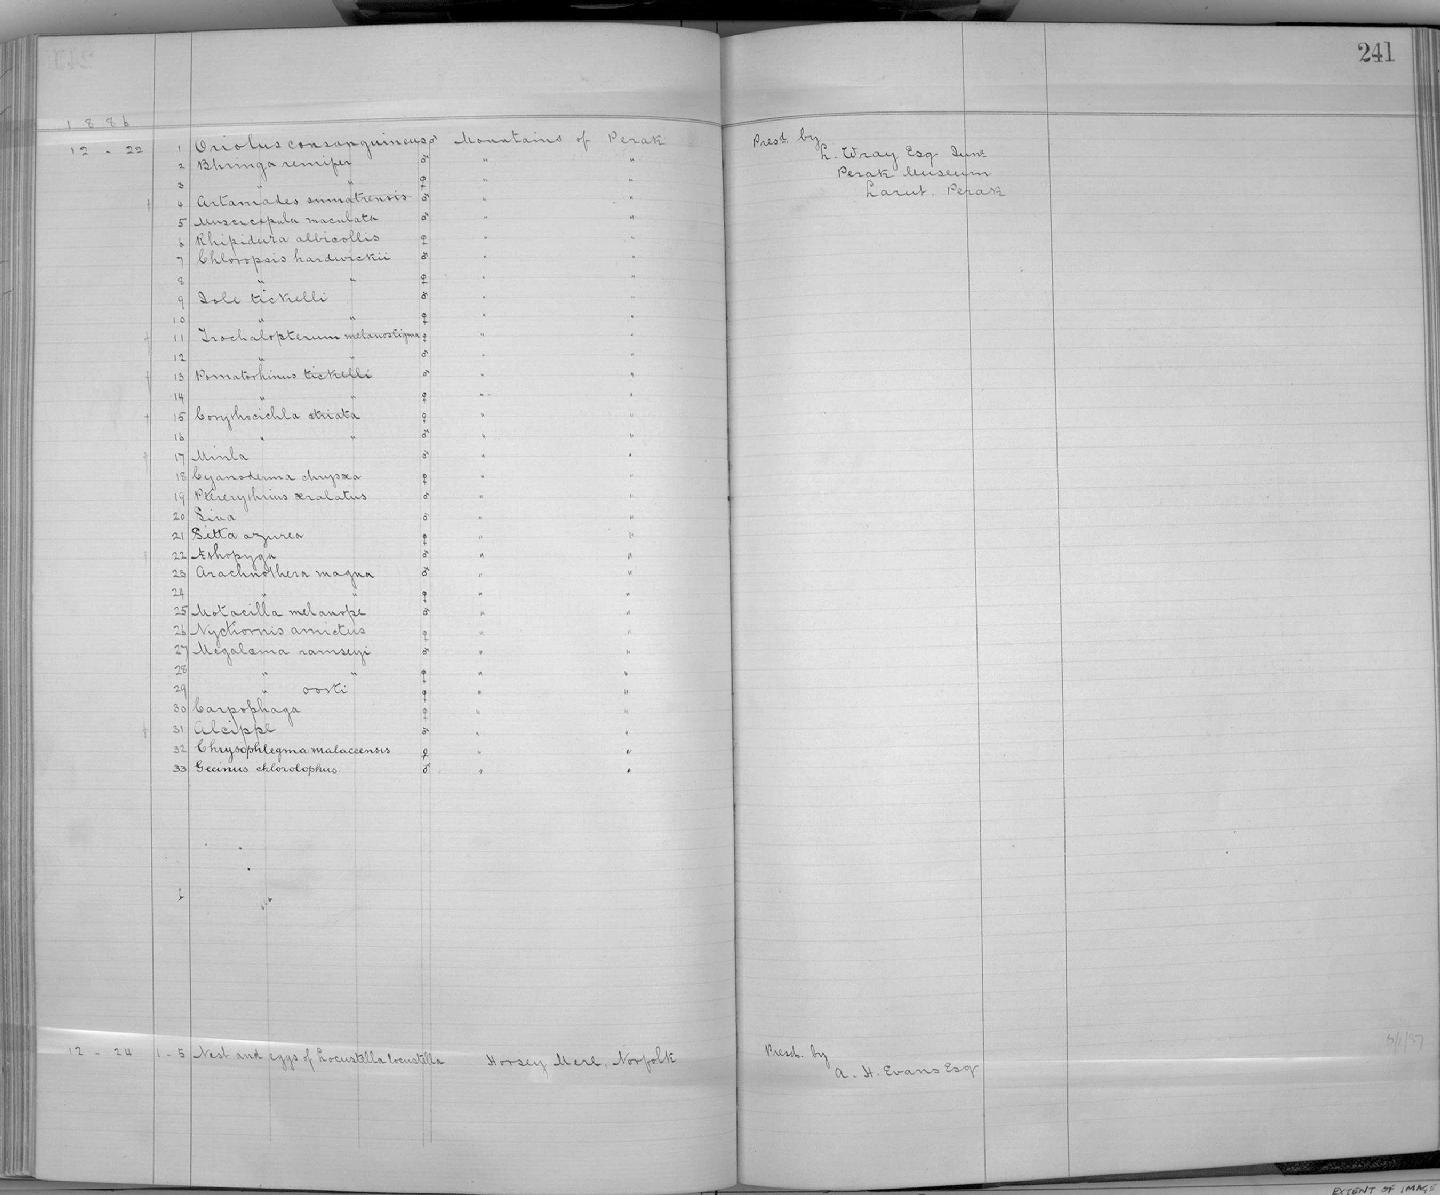 241
1886
12 - 22 1 Oriolus consanguineus ♂ Mountains of Perak Presd. by
L. Wray Esq Junr
2 Bhringa remifer ♂ " "
Perak Museum
3 " " ♀ " "
Larut. Perak
4 Artamides sumatrensis ♂ " "
5 Muscicapula maculata ♂ " "
6 Rhipidura albicollis ♀ " "
7 Chloropsis hardwickii ♂ " "
8 " " ♀ " "
9 Iole tickelli ♂ " "
10 " " ♀ " "
11 Trochalopterum melanostigma ♀ " "
12 " " ♂ " "
13 Pomatorhinus tickelli ♂ " "
14 " " ♀ " "
15 Corythocichla striata ♀ " "
16 " " ♂ " "
17 Minla ♂ " "
18 Cyanoderma chrysæa ♀ " "
19 Ptererythrius æralatus ♂ " "
20 Siva ♂ " "
21 Sitta azurea ♀ " "
22 Æthopyga ♂ " "
23 Arachnothera magna ♂ " "
24 " " ♀ " "
25 Motacilla melanope ♂ " "
26 Nyctiornis amictus ♀ " "
27 Megalæma ramsayi ♂ " "
28 " " ♀ " "
29 " oorti ♀ " "
30 Carpophaga ♀ " "
31 Alcippe ♂ " "
32 Chrysophlegma malaccensis ♀ " "
33 Gecinus chlorolophus ♂ " "
12 - 24 1-5 Nest and eggs of Locustella locustella Horsey Mere, Norfolk Presd. by
A. H. Evans Esq
EXTENT OF IMAGE